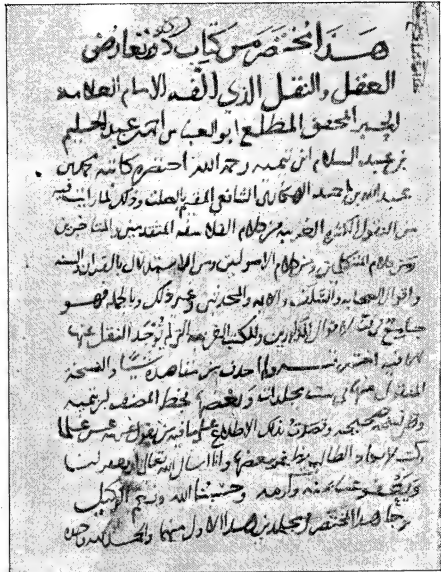 هذا المختصر من كتاب درء تعارض
العقل والنقل الذي الفه الامام العلامه
الحبر المحقق المطلع ابو العباس احمد بن عبد الحليم
بن عبد السلام ابن تيميه رحمه الله اختصره كاتبه محمد بن
عبد الله بن احمد الهكاري الشافعي المقيم بالصلت وذلك لما رايت فيه
من النقول الكثيره الغريبه من كلام الفلاسفه المتقدمين والمتاخرين
ومن كلام المتكلمين ومن كلام الاصوليين ومن الاستدلال بالقران والسنه
واقوال الصحابه والسلف والايمه والمحدثين وغير ذلك وبالجمله فهو
جامع لاقوال المذكورين وللكتب الغريبه التي لم يوجد النقل عنها
فيه اختصرته ولم احذف من مقاصده شيئا والنسخة
المنقول منها في ست مجلدات وبعضها بخط المصنف ابن تيميه
صحيحه وقصدت بذلك الاطلاع على ما فيه
الطالب بعضها وانا اسال الله تعالى ان يغفر لنا
ويعفو عنا بمنه وكرمه وحسبنا الله ونعم الوكيل
وجا هذا المختصر في مجلدين هذا الاول منهما والحمد لله وحده